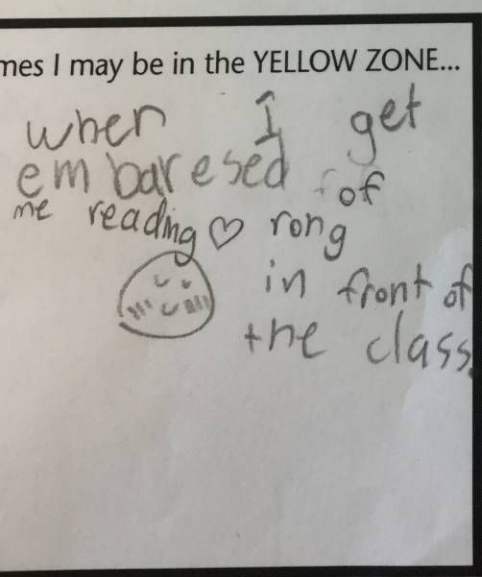 mes I may be in the YELLOW ZONE...
when I get
embaresed of
me reading ♡ rong
in front of
the class.